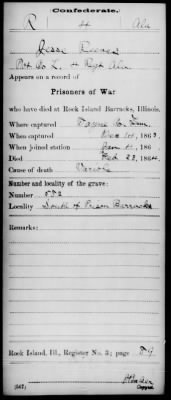 Confederate.
R 4 Ala
Jesse Reeves
Pvt Co L. 4 Regt Ala
Appears on a record of
Prisoners of War
who have died at Rock Island Barracks, Illinois.
Where captured Co. Tenn.
When captured Dec 14, 1863.
When joined station Jan 4, 186
Died Feb 23, 1864.
Cause of death Variola
Number and locality of the grave:
Number 552
Locality South of Prison Barracks
Remarks:
Rock Island, Ill., Register No. 3; page 54
(647)
Copyist.